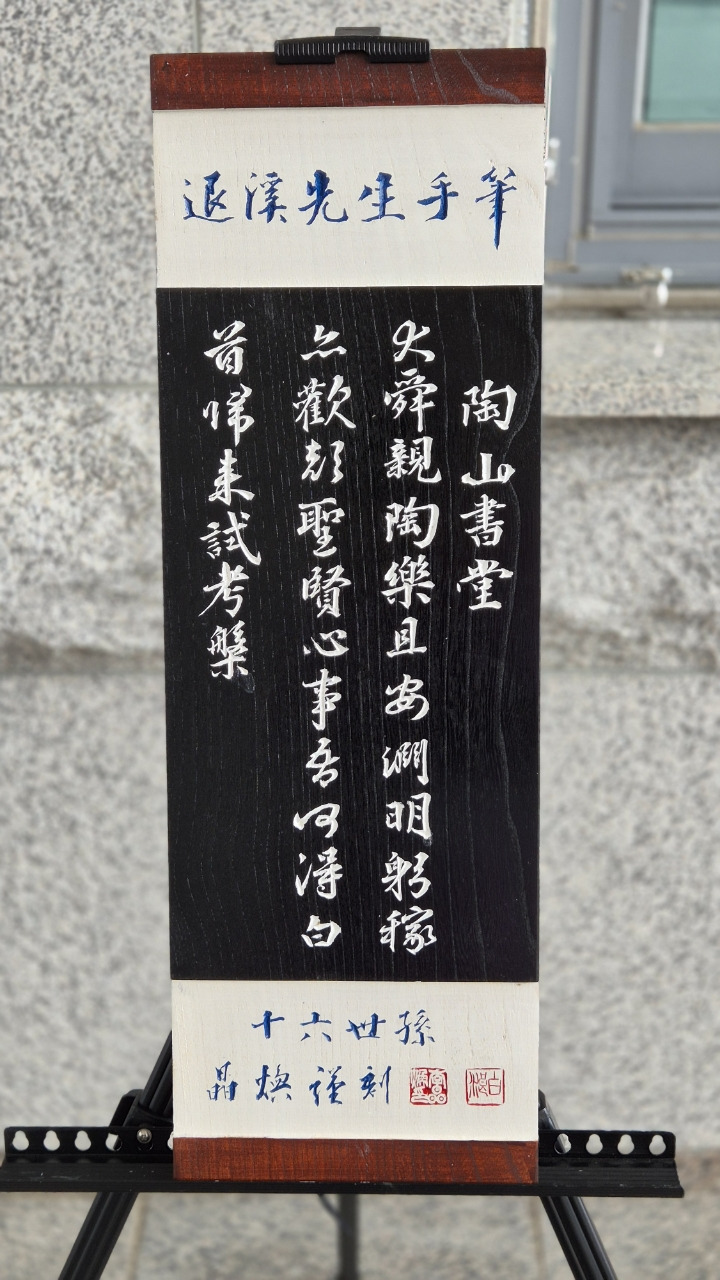 退溪先生手筆
陶山書堂
大舜親陶樂且安淵明躬稼
亦歡顔聖賢心事吾何得白
首歸来試考槃
十六世孫
晶煥謹刻